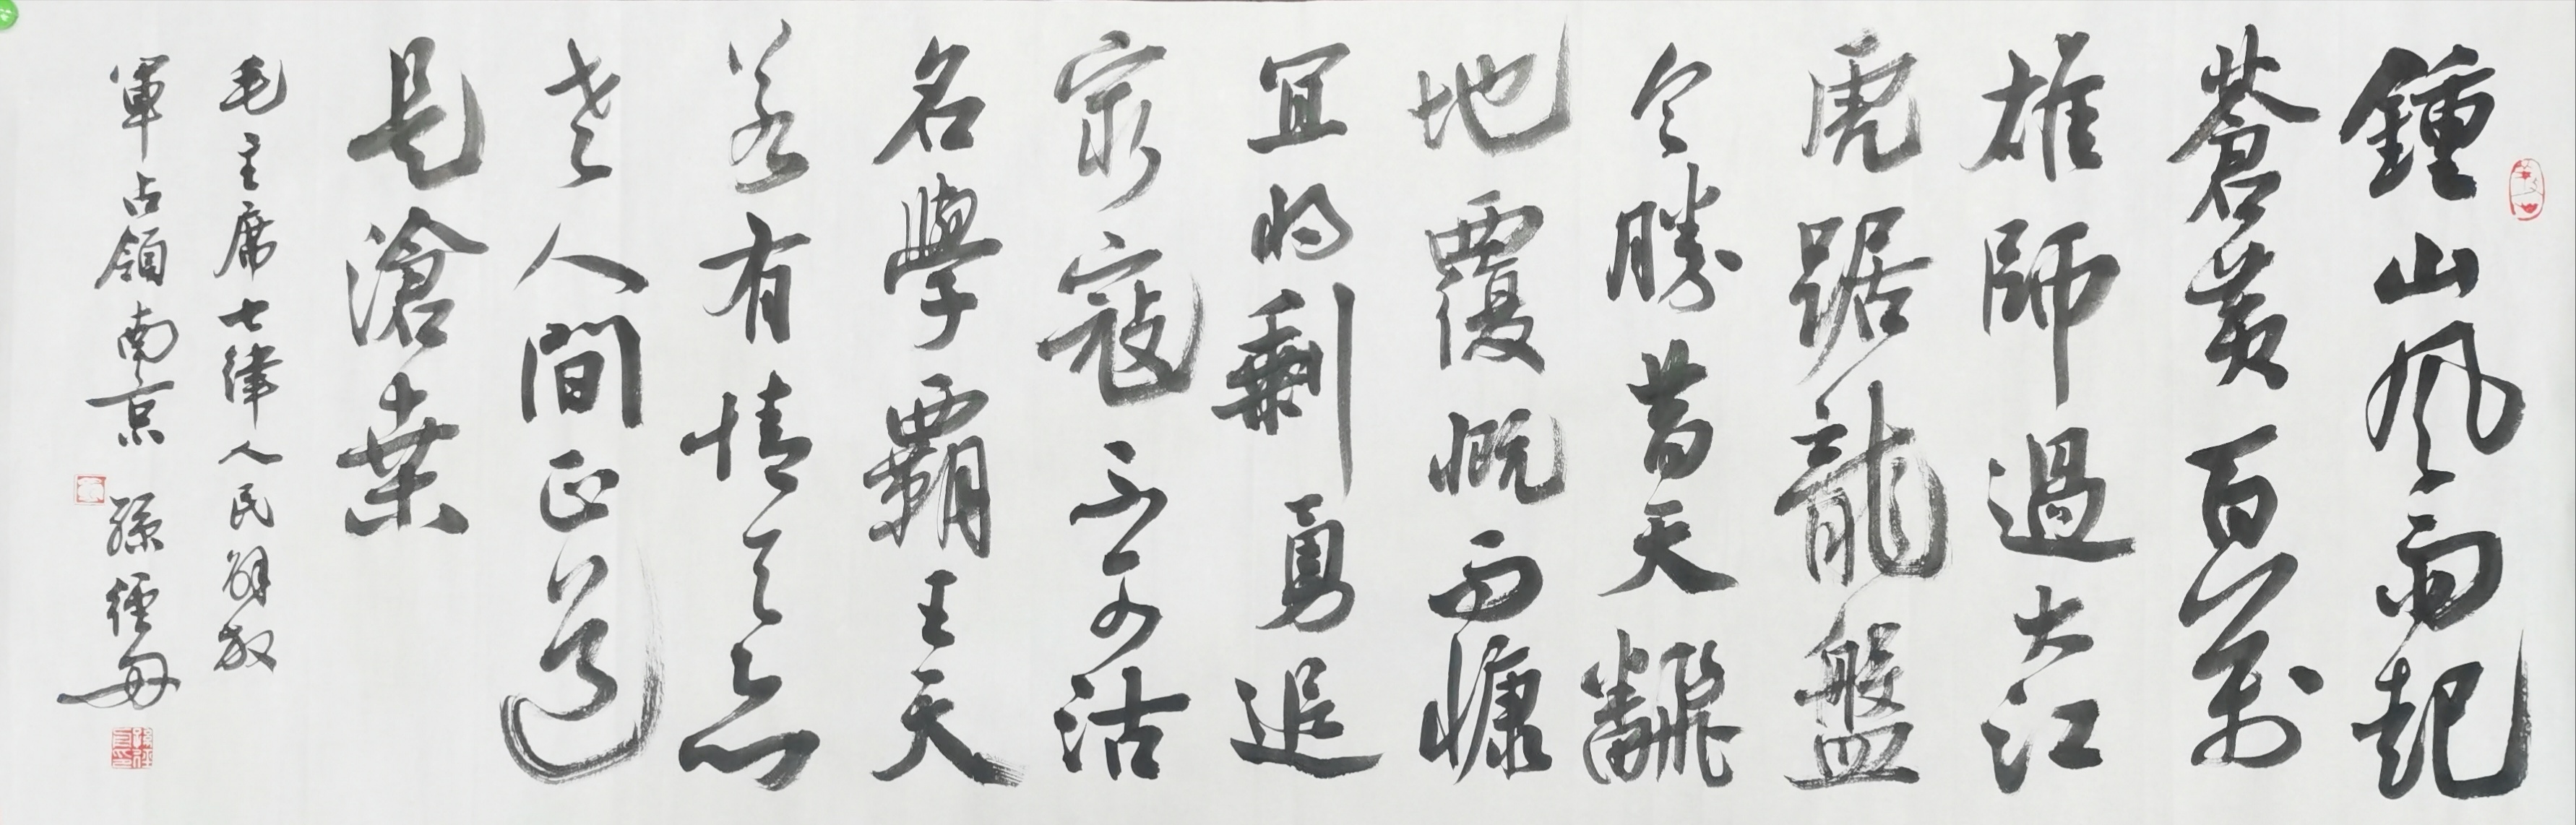 鍾山風雨起
蒼黃百萬
雄師過大江
虎踞龍盤
今勝昔天飜
地覆慨而慷
宜將剩勇追
窮寇不可沽
名學霸王天
若有情天亦
老人間正道
是滄桒
毛主席七律人民解放
軍占領南京 孫經